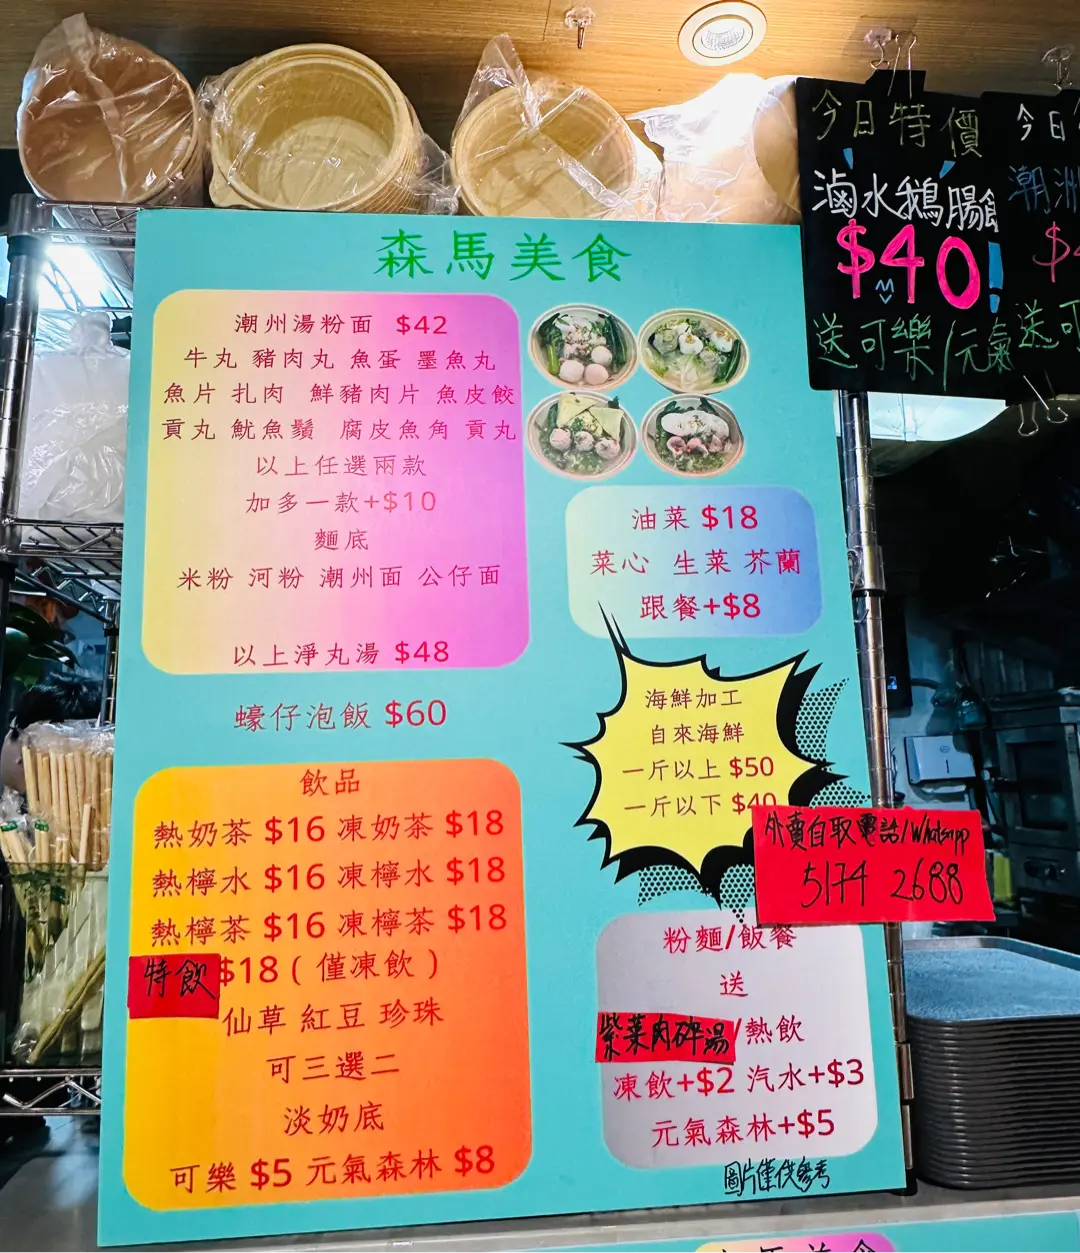 森馬美食
潮州湯粉面 $42
牛丸 豬肉丸 魚蛋 墨魚丸
魚片 扎肉 鮮豬肉片 魚皮餃
貢丸 魷魚鬚 腐皮魚角 貢丸
以上任選兩款
加多一款+$10
麵底
米粉 河粉 潮州面 公仔面
以上淨丸湯 $48
蠔仔泡飯 $60
飲品
熱奶茶 $16 凍奶茶 $18
熱檸水 $16 凍檸水 $18
熱檸茶 $16 凍檸茶 $18
特飲 $18 ( 僅凍飲 )
仙草 紅豆 珍珠
可三選二
淡奶底
可樂 $5 元氣森林 $8
油菜 $18
菜心 生菜 芥蘭
跟餐+$8
海鮮加工
自來海鮮
一斤以上 $50
一斤以下 $40
外賣自取電話/Whatsapp
5174 2688
粉麵/飯餐
送
紫菜肉碎湯/熱飲
凍飲+$2 汽水+$3
元氣森林+$5
圖片僅供參考
今日特價
滷水鵝腸飯
$40!
送可樂/元氣
今日
潮洲
$4
送可